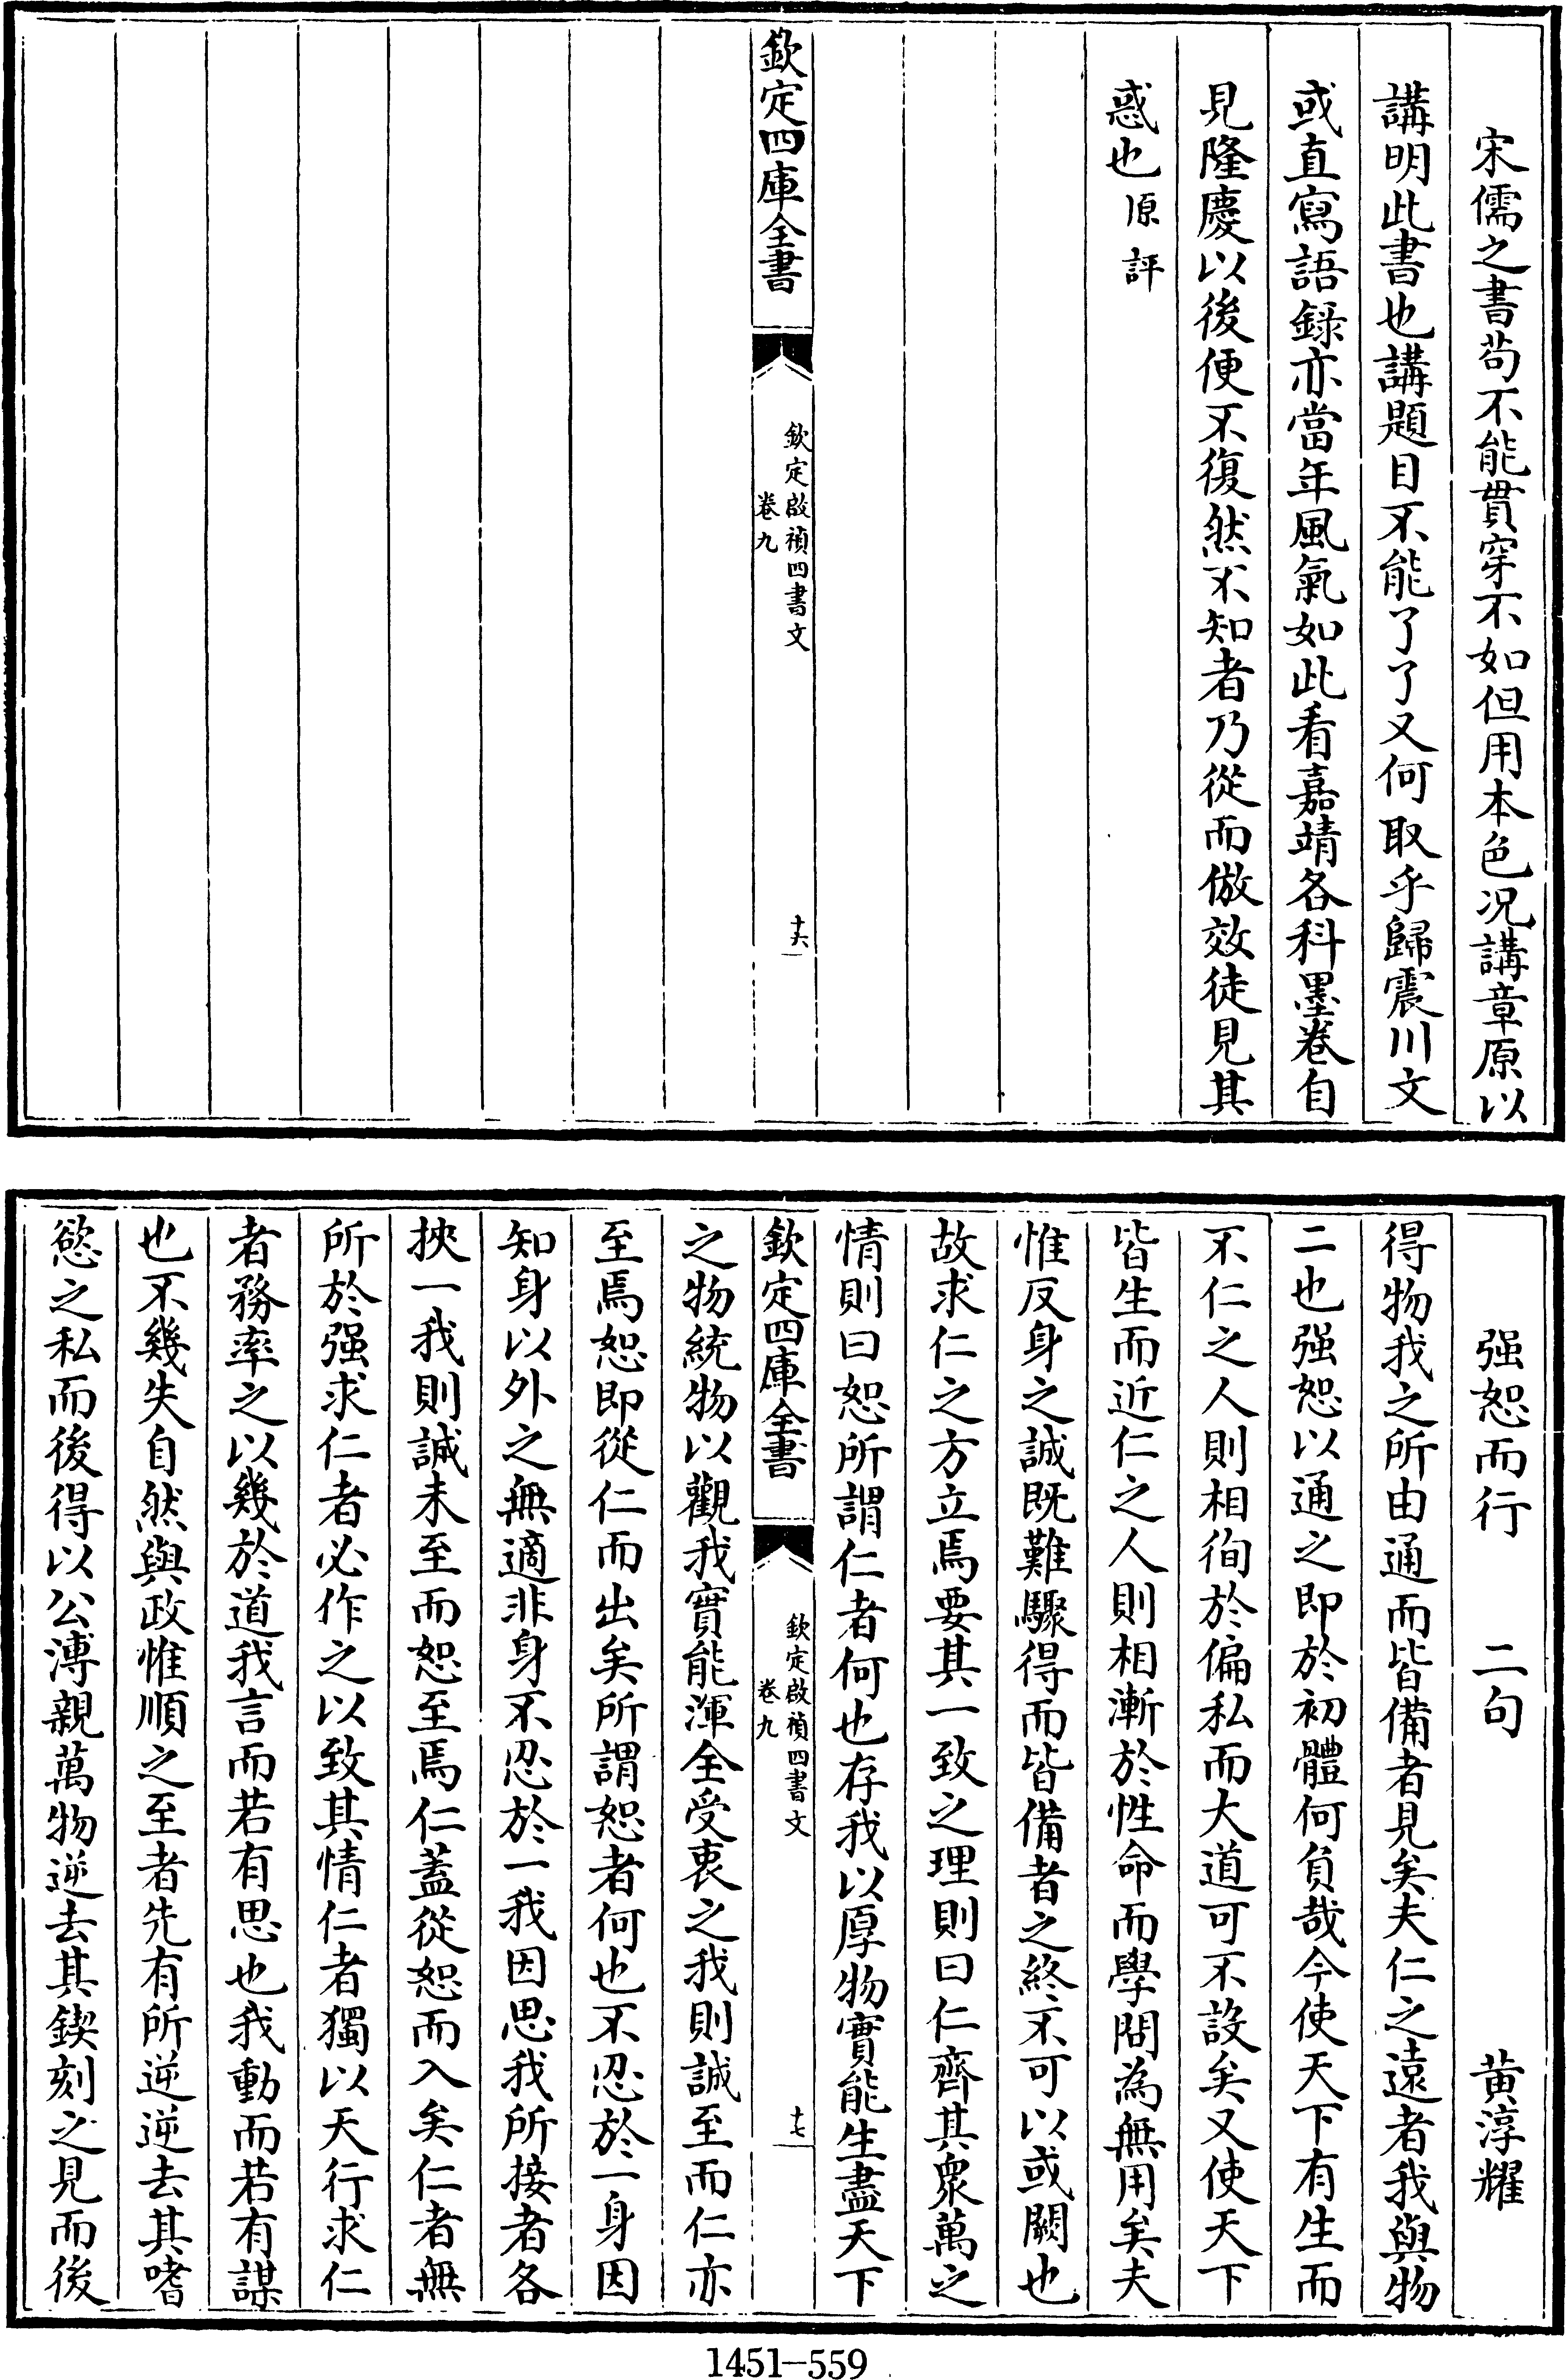 宋儒之書苟不能貫穿不如但用本色况講章原以
講明此書也講題目不能了了又何取乎歸震川文
或直寫語録亦當年風氣如此看嘉靖各科墨卷自
見隆慶以後便不復然不知者乃從而倣效徒見其
惑也原評
欽定四庫全書
欽定啟禎四書文
卷九
十六
强恕而行 二句 黄淳耀
得物我之所由通而皆備者見矣夫仁之遠者我與物
二也强恕以通之即於初體何負哉今使天下有生而
不仁之人則相徇於偏私而大道可不設矣又使天下
皆生而近仁之人則相漸於性命而學問為無用矣夫
惟反身之誠既難驟得而皆備者之終不可以或闕也
故求仁之方立焉要其一致之理則曰仁齊其衆萬之
情則曰恕所謂仁者何也存我以厚物實能生盡天下
欽定四庫全書
欽定啟禎四書文
卷九
十七
之物統物以觀我實能渾全受衷之我則誠至而仁亦
至焉恕即從仁而出矣所謂恕者何也不忍於一身因
知身以外之無適非身不忍於一我因思我所接者各
挾一我則誠未至而恕至焉仁蓋從恕而入矣仁者無
所於强求仁者必作之以致其情仁者獨以天行求仁
者務率之以幾於道我言而若有思也我動而若有謀
也不幾失自然與政惟順之至者先有所逆逆去其嗜
慾之私而後得以公溥親萬物逆去其鍥刻之見而後
1451-559